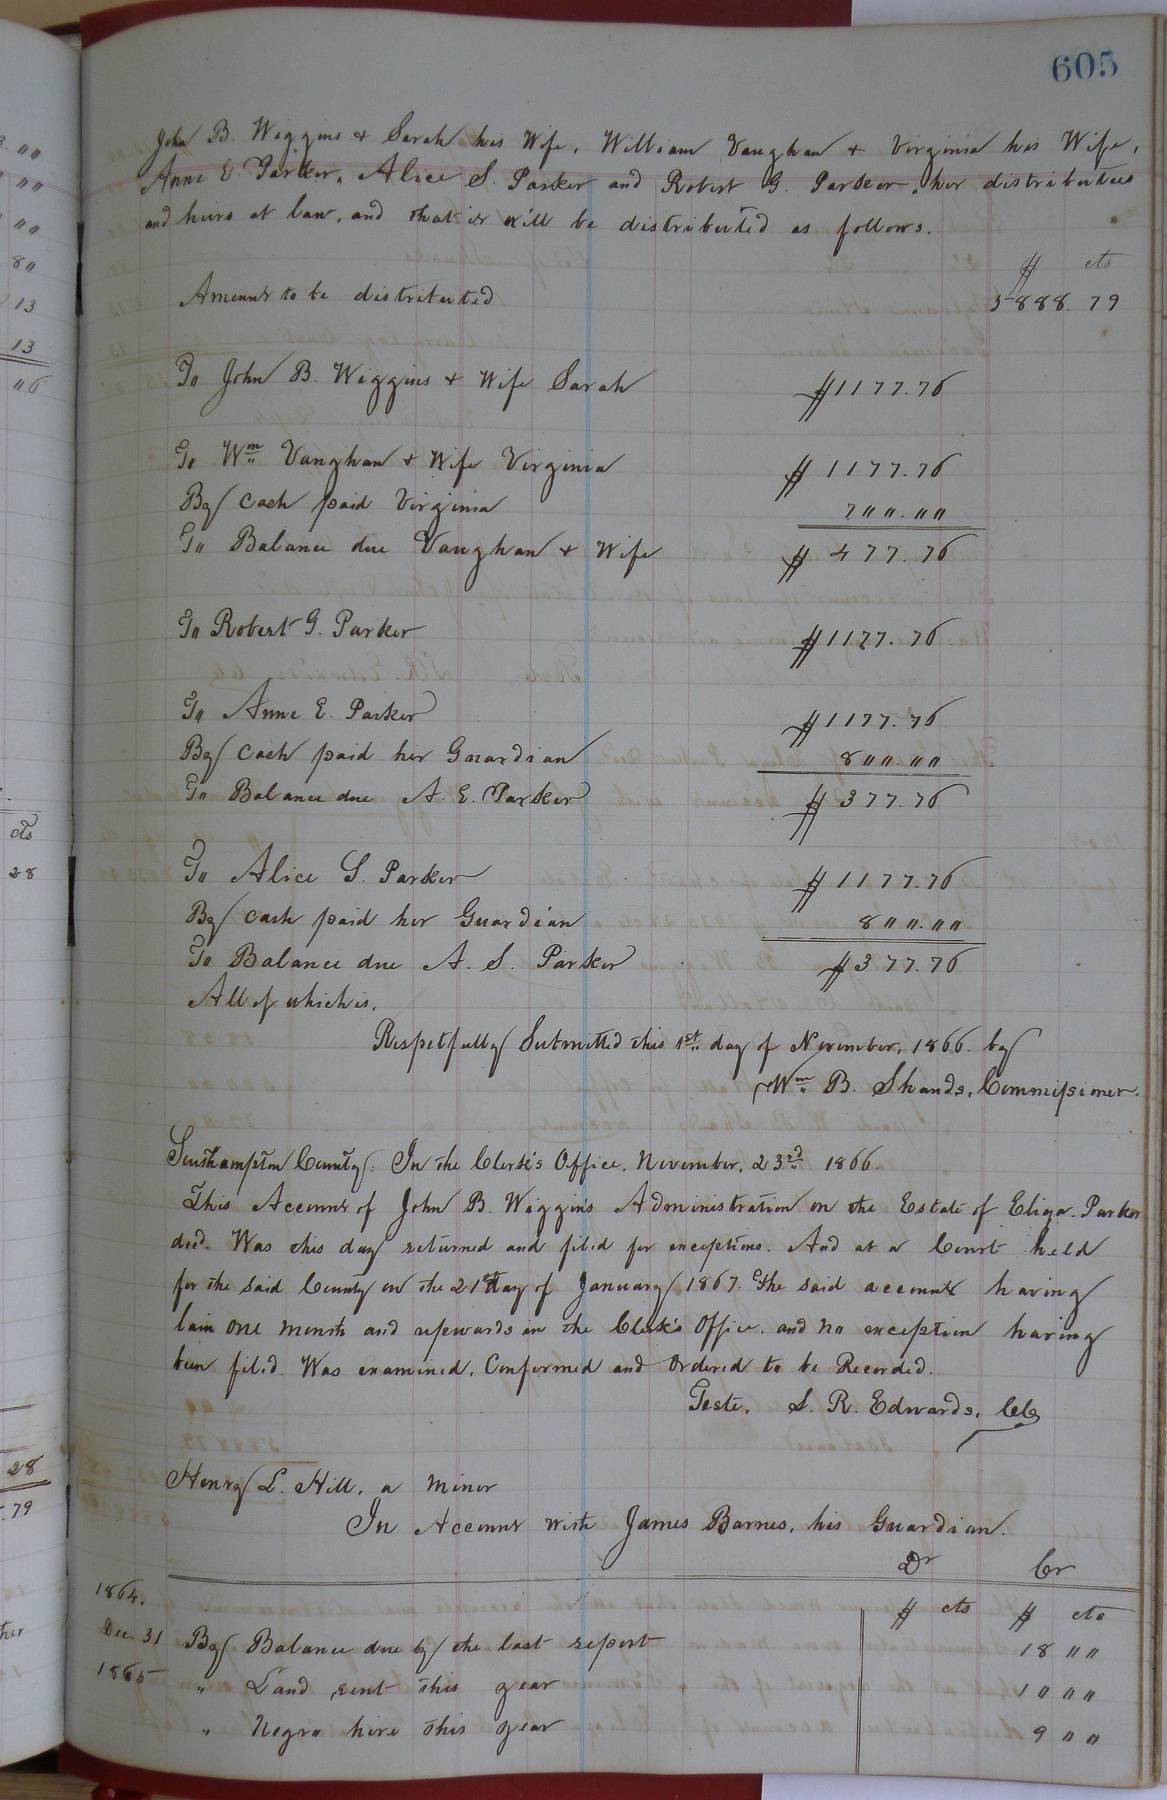 605
John B. Wiggins & Sarah his Wife, William Vaughan & Virginia his Wife,
Anne E. Parker, Alice S. Parker and Robert G. Parker, her distributees
and heirs at law, and that it will be distributed as follows.
$ cts
Amount to be distributed 5888.79
To John B. Wiggins & Wife Sarah $1177.76
To Wm Vaughan & Wife Virginia $1177.76
By cash paid Virginia 700.00
To Balance due Vaughan & Wife $477.76
To Robert G. Parker $1177.76
To Anne E. Parker $1177.76
By Cash paid her Guardian 800.00
To Balance due A. E. Parker $377.76
To Alice S. Parker $1177.76
By cash paid her Guardian 800.00
To Balance due A. S. Parker $377.76
All of which is,
Respetfully Submitted this 1st day of November, 1866. by
Wm B. Shands, Commissioner.
Southampton County: In the Clerk's Office, November, 23rd 1866.
This Account of John B. Wiggin's Administration on the Estate of Eliza Parker
decd. Was this day returned and filed for exceptions. And at a Court held
for the said County on the 21st day of January 1867. The said account having
lain one month and upwards in the Clerk's Office, and no exception having
been filed. Was examined, Confirmed and Ordered to be Recorded.
Teste, S. R. Edwards, CC
Henry L. Hill, a minor
In Account with James Barnes, his Guardian.
Dr Cr
1864. $ cts $ cts
Dec. 31 By Balance due by the last report 18 00
1865 " Land rent this year 10 00
" Negro hire this year 9 00
3.00
00
00
80
13
13
06
cts
28
28
.79